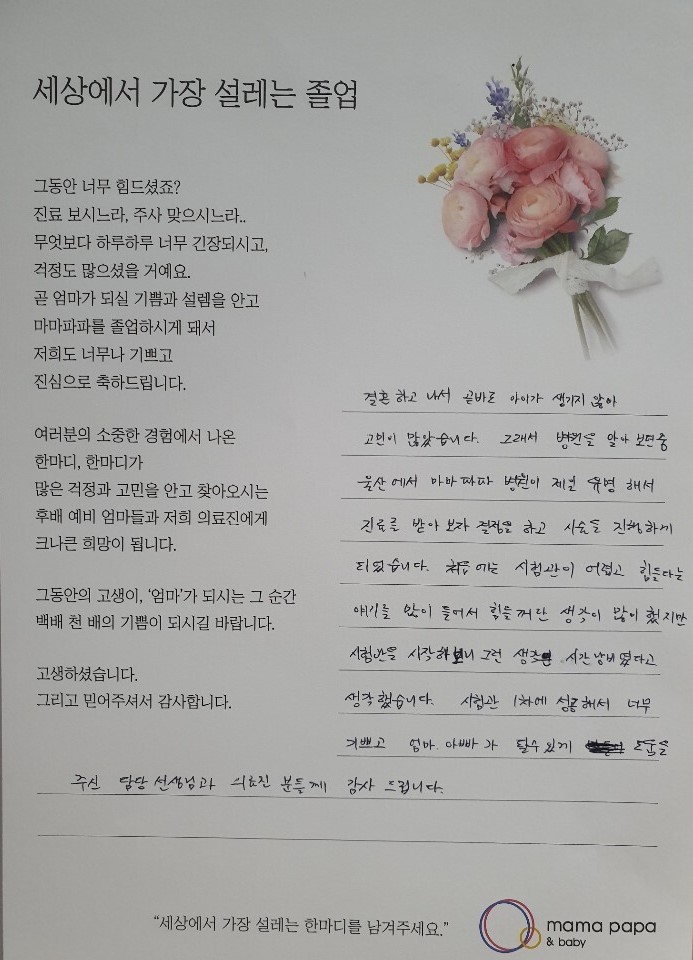 세상에서 가장 설레는 졸업
그동안 너무 힘드셨죠?
진료 보시느라, 주사 맞으시느라..
무엇보다 하루하루 너무 긴장되시고,
걱정도 많으셨을 거예요.
곧 엄마가 되실 기쁨과 설렘을 안고
마마파파를 졸업하시게 돼서
저희도 너무나 기쁘고
진심으로 축하드립니다.
여러분의 소중한 경험에서 나온
한마디, 한마디가
많은 걱정과 고민을 안고 찾아오시는
후배 예비 엄마들과 저희 의료진에게
크나큰 희망이 됩니다.
그동안의 고생이, ‘엄마’가 되시는 그 순간
백배 천 배의 기쁨이 되시길 바랍니다.
고생하셨습니다.
그리고 믿어주셔서 감사합니다.
결혼 하고 나서 곧바로 아이가 생기지 않아
고민이 많았습니다. 그래서 병원을 알아 보던중
울산에서 마마파파 병원이 제일 유명 해서
진료를 받아 보자 결정을 하고 시술을 진행하게
되었습니다. 처음에는 시험관이 어렵고 힘들다는
얘기를 많이 들어서 힘들꺼란 생각이 많이 했지만
시험관을 시작해보니 그런 생각은 시간낭비였다고
생각했습니다. 시험관 1차에 성공해서 너무
기쁘고 엄마.아빠가 될수있게 도움을
주신 담당선생님과 의료진 분들께 감사 드립니다.
“세상에서 가장 설레는 한마디를 남겨주세요.”
mama papa
& baby